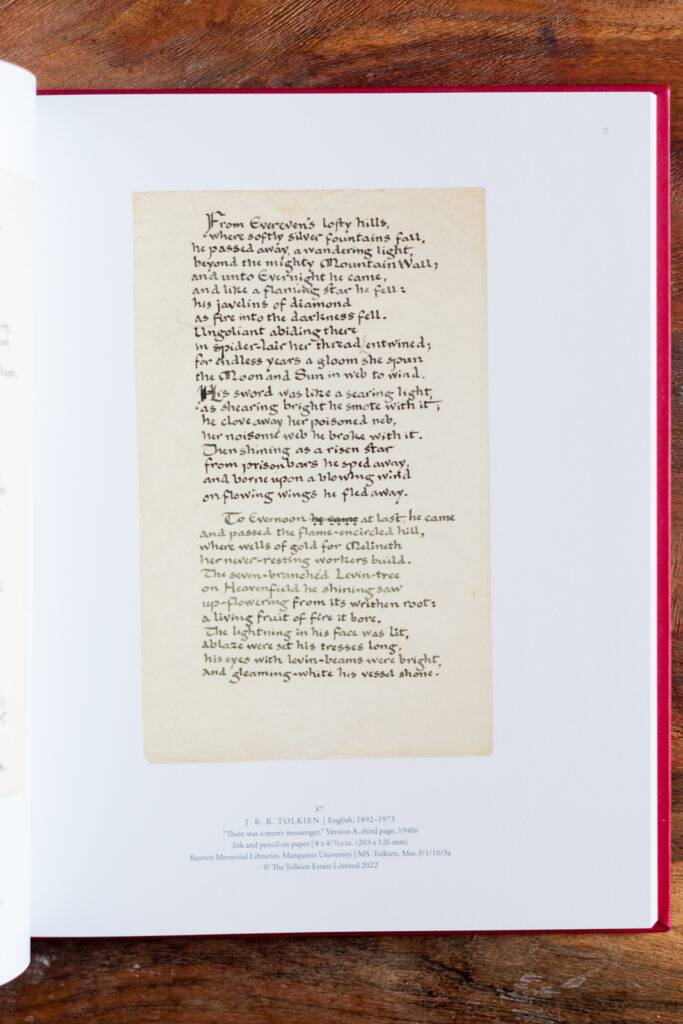 71
From Evereven's lofty hills,
where softly silver fountains fall,
he passed away, a wandering light,
beyond the mighty Mountain Wall;
and unto Evernight he came,
and like a flaming star he fell:
his javelins of diamond
as fire into the darkness fell.
Ungoliant abiding there
in spider-lair her thread entwined;
for endless years a gloom she spun
the Moon and Sun in web to wind.
His sword was like a searing light,
as shearing bright he smote with it;
he clove away her poisoned neb,
her noisome web he broke with it.
Then shining as a risen star
from prison bars he sped away,
and borne upon a blowing wind
on flowing wings he fled away.
To Evernoon he came at last he came
and passed the flame-encircled hill,
where wells of gold for Melineth
her never-resting workers build.
The seven-branchéd Levin-tree
on Heavenfield he shining saw
up-flowering from its writhen root:
a living fruit of fire it bore.
The lightning in his face was lit,
ablaze were set his tresses long,
his eyes with levin-beams were bright,
and gleaming-white his vessel shone.
37.
J. R. R. TOLKIEN | English, 1892–1973
"There was a merry messenger," Version A, third page, 1940s
Ink and pencil on paper | 8 x 4 15/16 in. (203 x 126 mm)
Raynor Memorial Libraries, Marquette University | MS. Tolkien, Mss-3/1/10/3a
© The Tolkien Estate Limited 2022